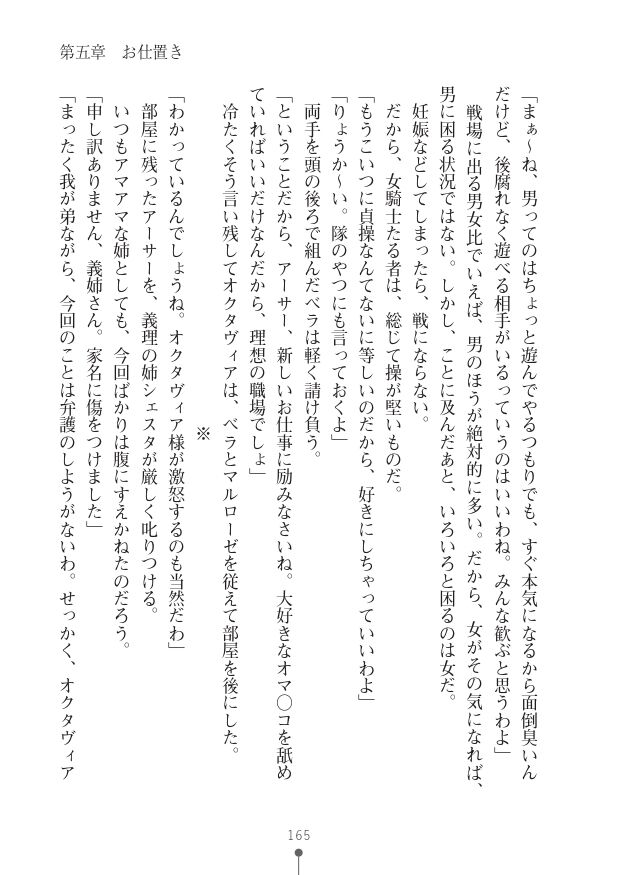 第五章　お仕置き
「まぁ～ね、男ってのはちょっと遊んでやるつもりでも、すぐ本気になるから面倒臭いん
だけど、後腐れなく遊べる相手がいるっていうのはいいわね。みんな歓ぶと思うわよ」
戦場に出る男女比でいえば、男のほうが絶対的に多い。だから、女がその気になれば、
男に困る状況ではない。しかし、ことに及んだあと、いろいろと困るのは女だ。
妊娠などしてしまったら、戦にならない。
だから、女騎士たる者は、総じて操が堅いものだ。
「もうこいつに貞操なんてないに等しいのだから、好きにしちゃっていいわよ」
「りょうか～い。隊のやつにも言っておくよ」
両手を頭の後ろで組んだベラは軽く請け負う。
「ということだから、アーサー、新しいお仕事に励みなさいね。大好きなオマ〇コを舐め
ていればいいだけなんだから、理想の職場でしょ」
冷たくそう言い残してオクタヴィアは、ベラとマルローゼを従えて部屋を後にした。
※
「わかっているんでしょうね。オクタヴィア様が激怒するのも当然だわ」
部屋に残ったアーサーを、義理の姉シェスタが厳しく叱りつける。
いつもアマアマな姉としても、今回ばかりは腹にすえかねたのだろう。
「申し訳ありません、義姉さん。家名に傷をつけました」
「まったく我が弟ながら、今回のことは弁護のしようがないわ。せっかく、オクタヴィア
165